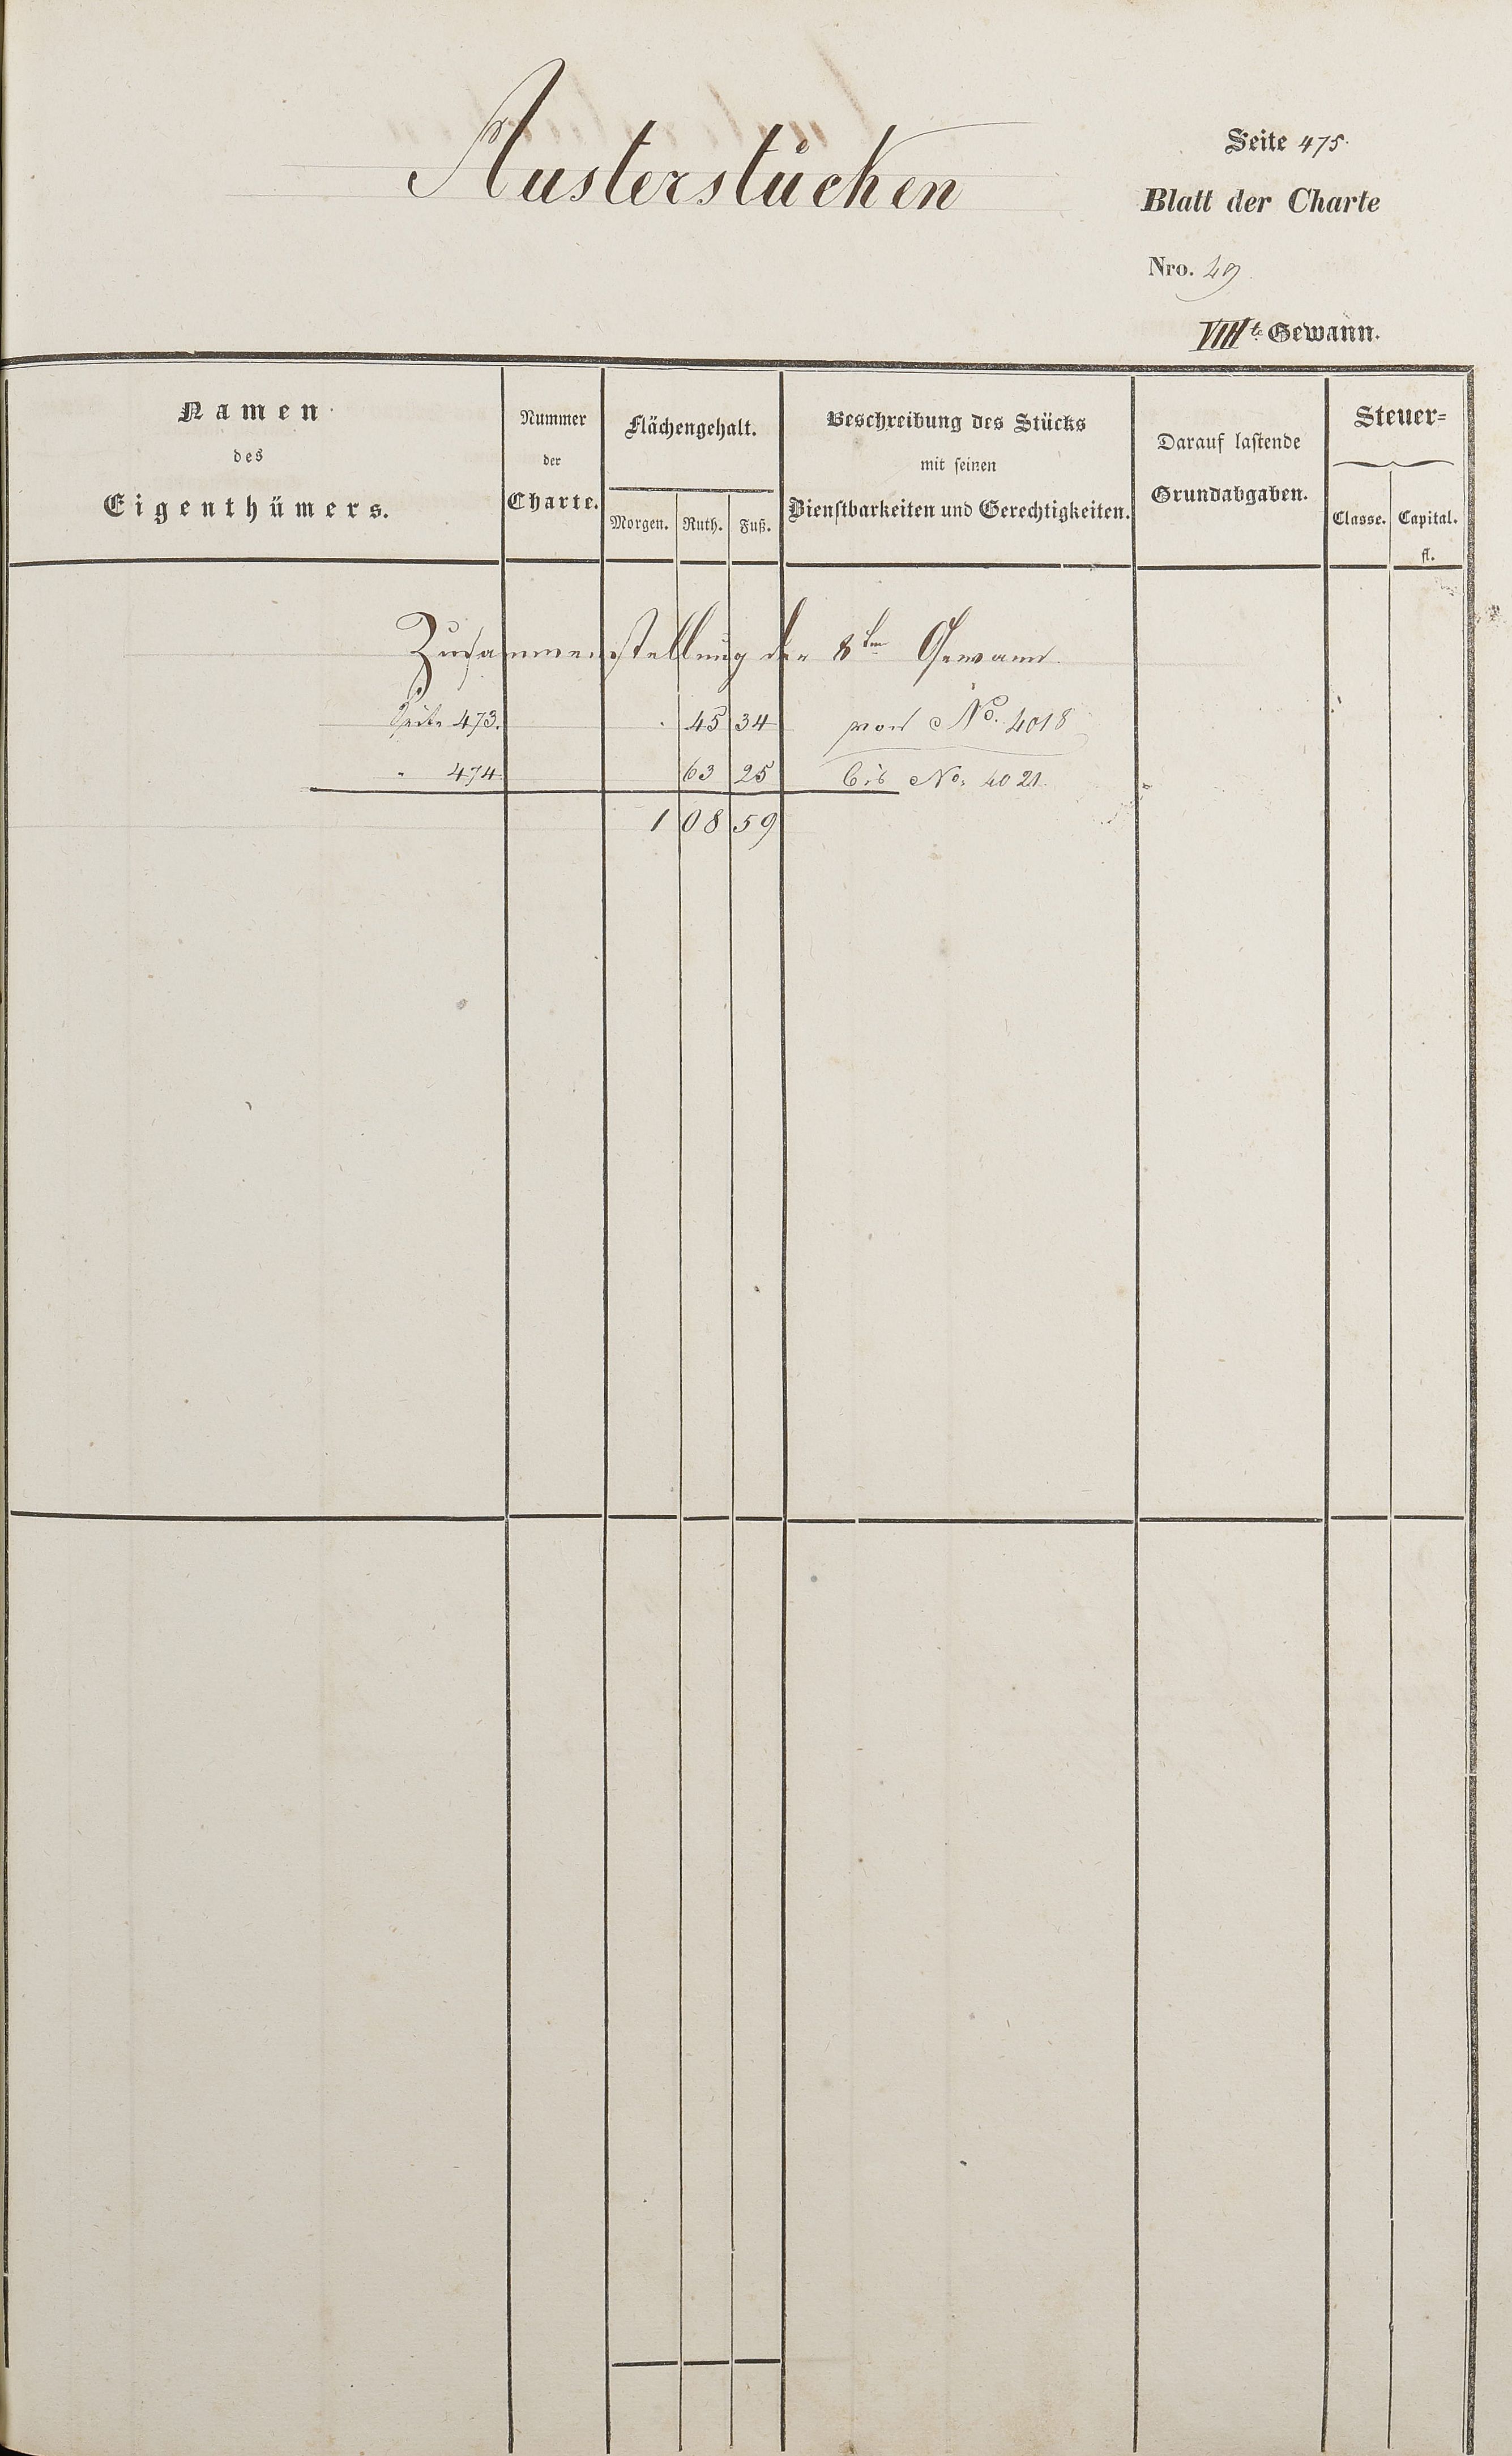 Austerstücken
Seite 475.
Blatt der Charte
Nro. 49
VIIIte Gewann.
Namen
des
Eigenthümers.
Nummer
der
Charte.
Flächengehalt.
Morgen. Ruth. Fuß.
Beschreibung des Stücks
mit seinen
Dienstbarkeiten und Gerechtigkeiten.
Darauf lastende
Grundabgaben.
Steuer=
Classe. Capital.
fl.
Zusammenstellung der 8ten Gewann.
Seite 473. . 45 34 von No. 4018
" 474. 63 25 bis No. 4021.
1 08 59